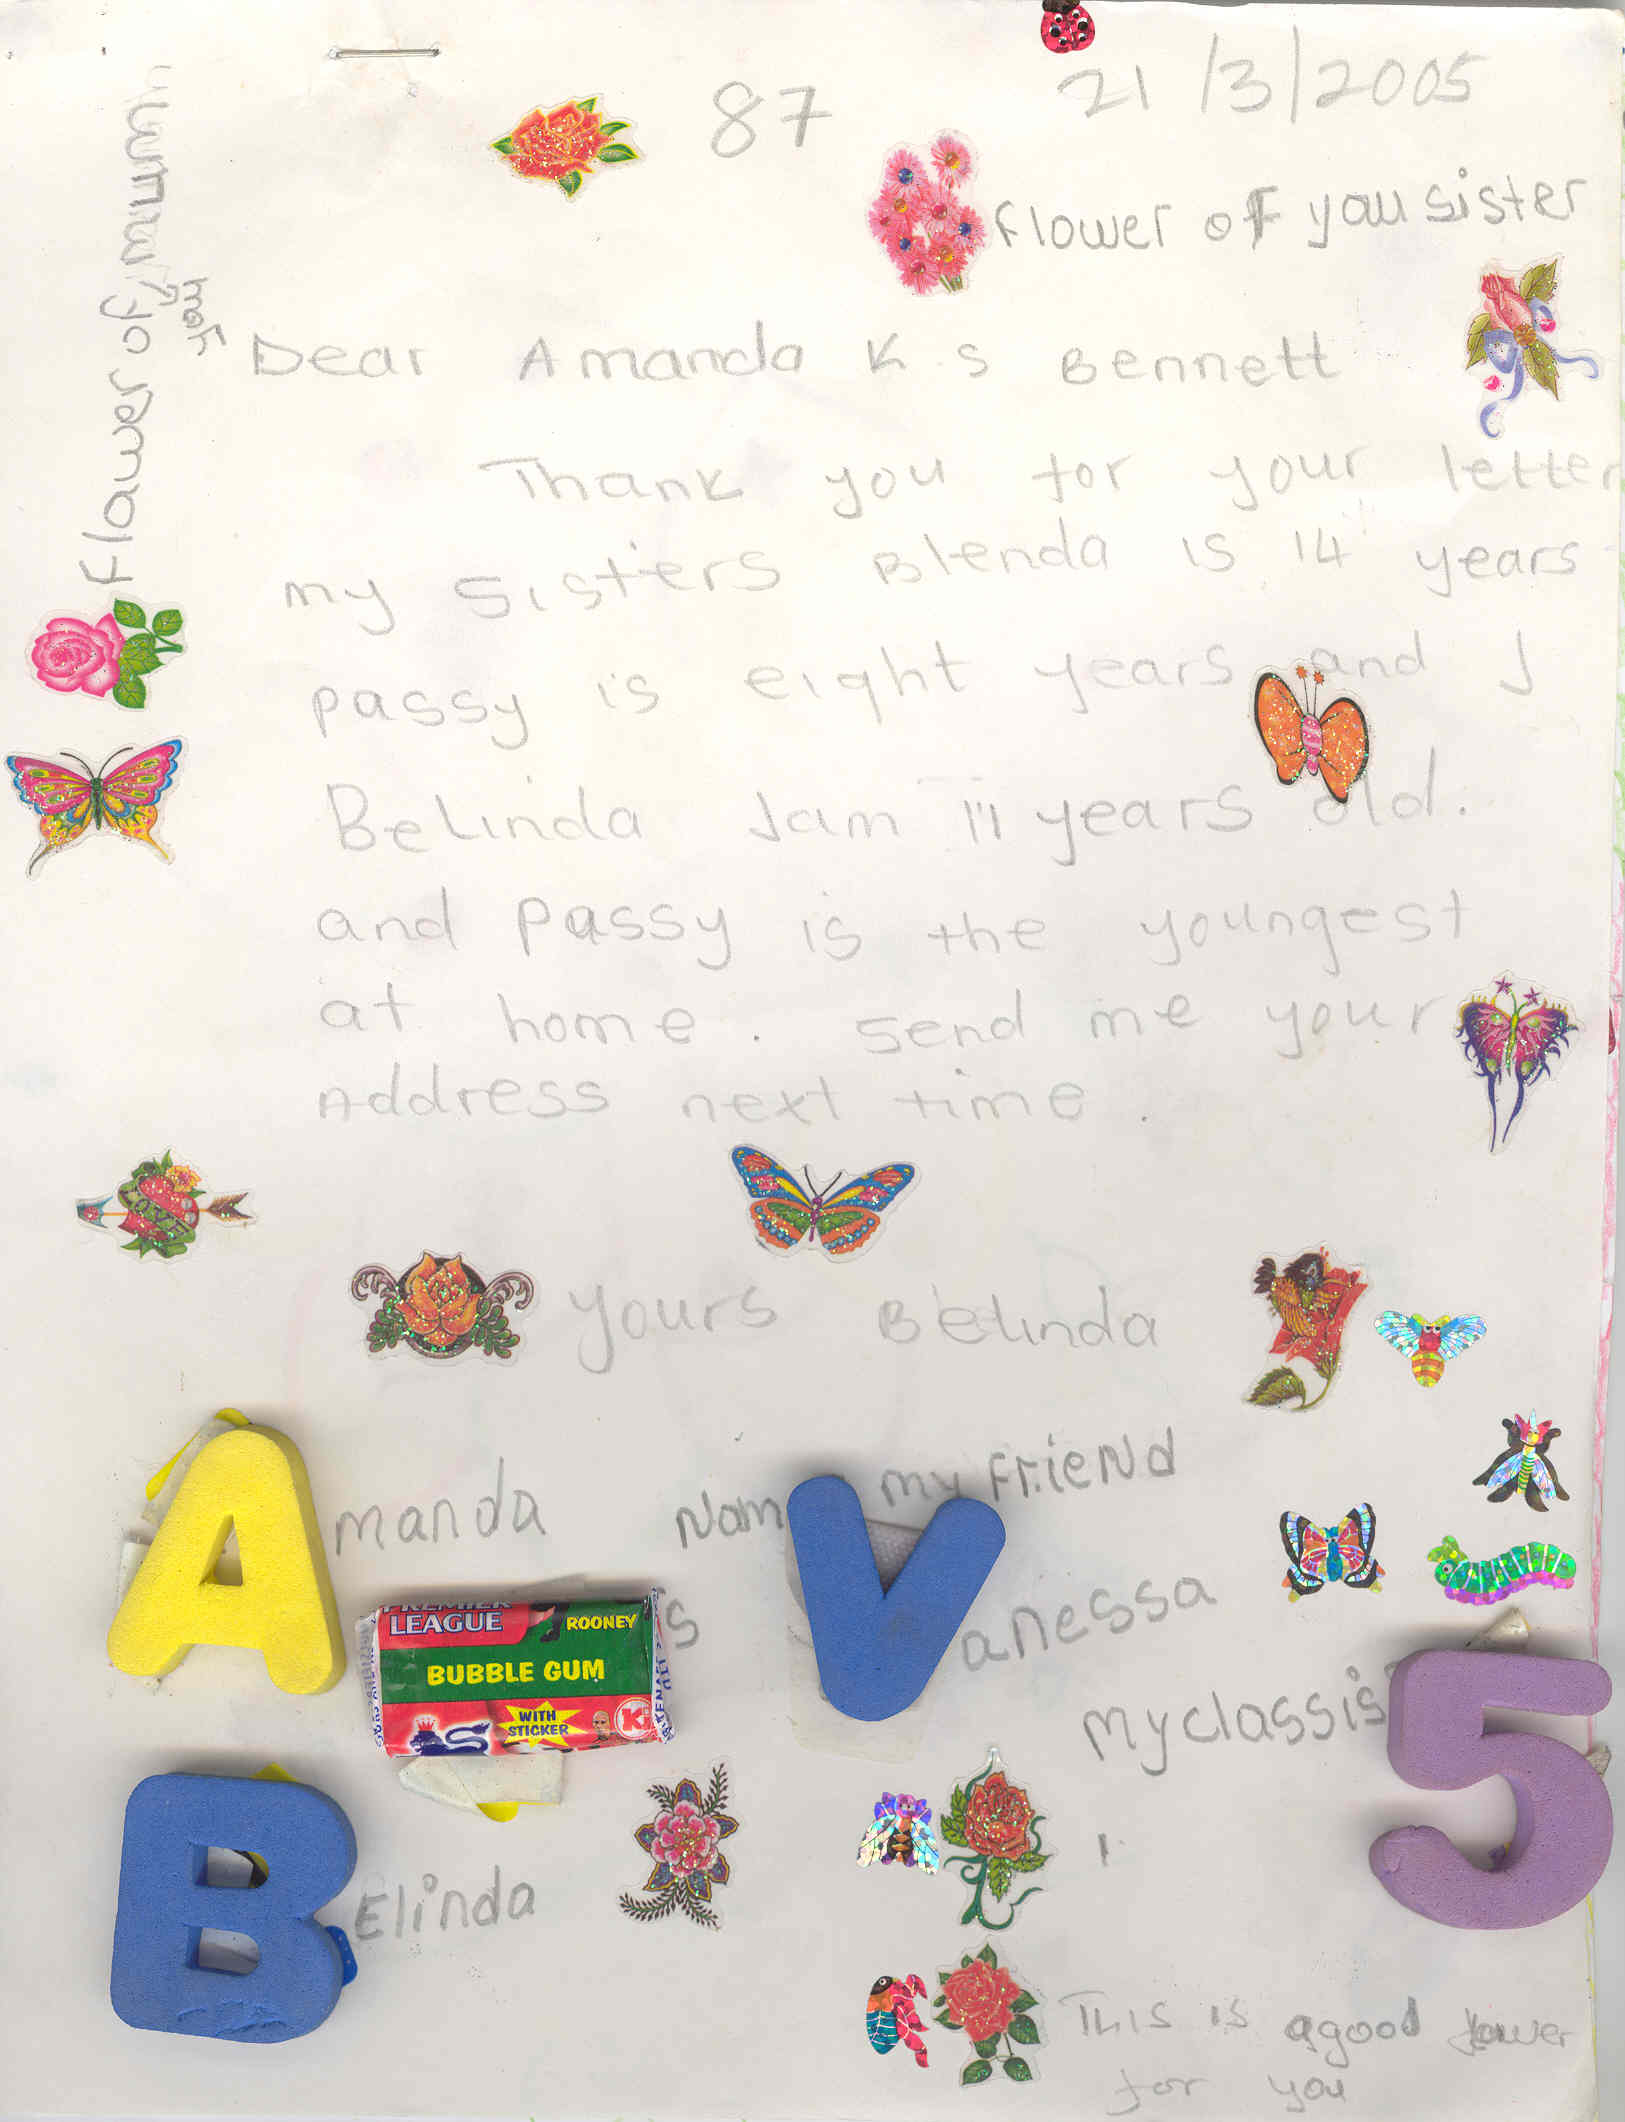 87
21/3/2005
flower of you sister
Flawer of
your
Dear Amanda K.S Bennett
Thank you for your letter
my sisters Blenda is 14 years
passy is eight years and J
Belinda Jam 11 years old.
and Passy is the youngest
at home. send me your
Address next time.
LOVE
yours Belinda
Amanda Nam my friend
s Vanessa
PREMIER
LEAGUE
ROONEY
BUBBLE GUM
WITH
STICKER
My class is 5
BElinda
This is a good
for you